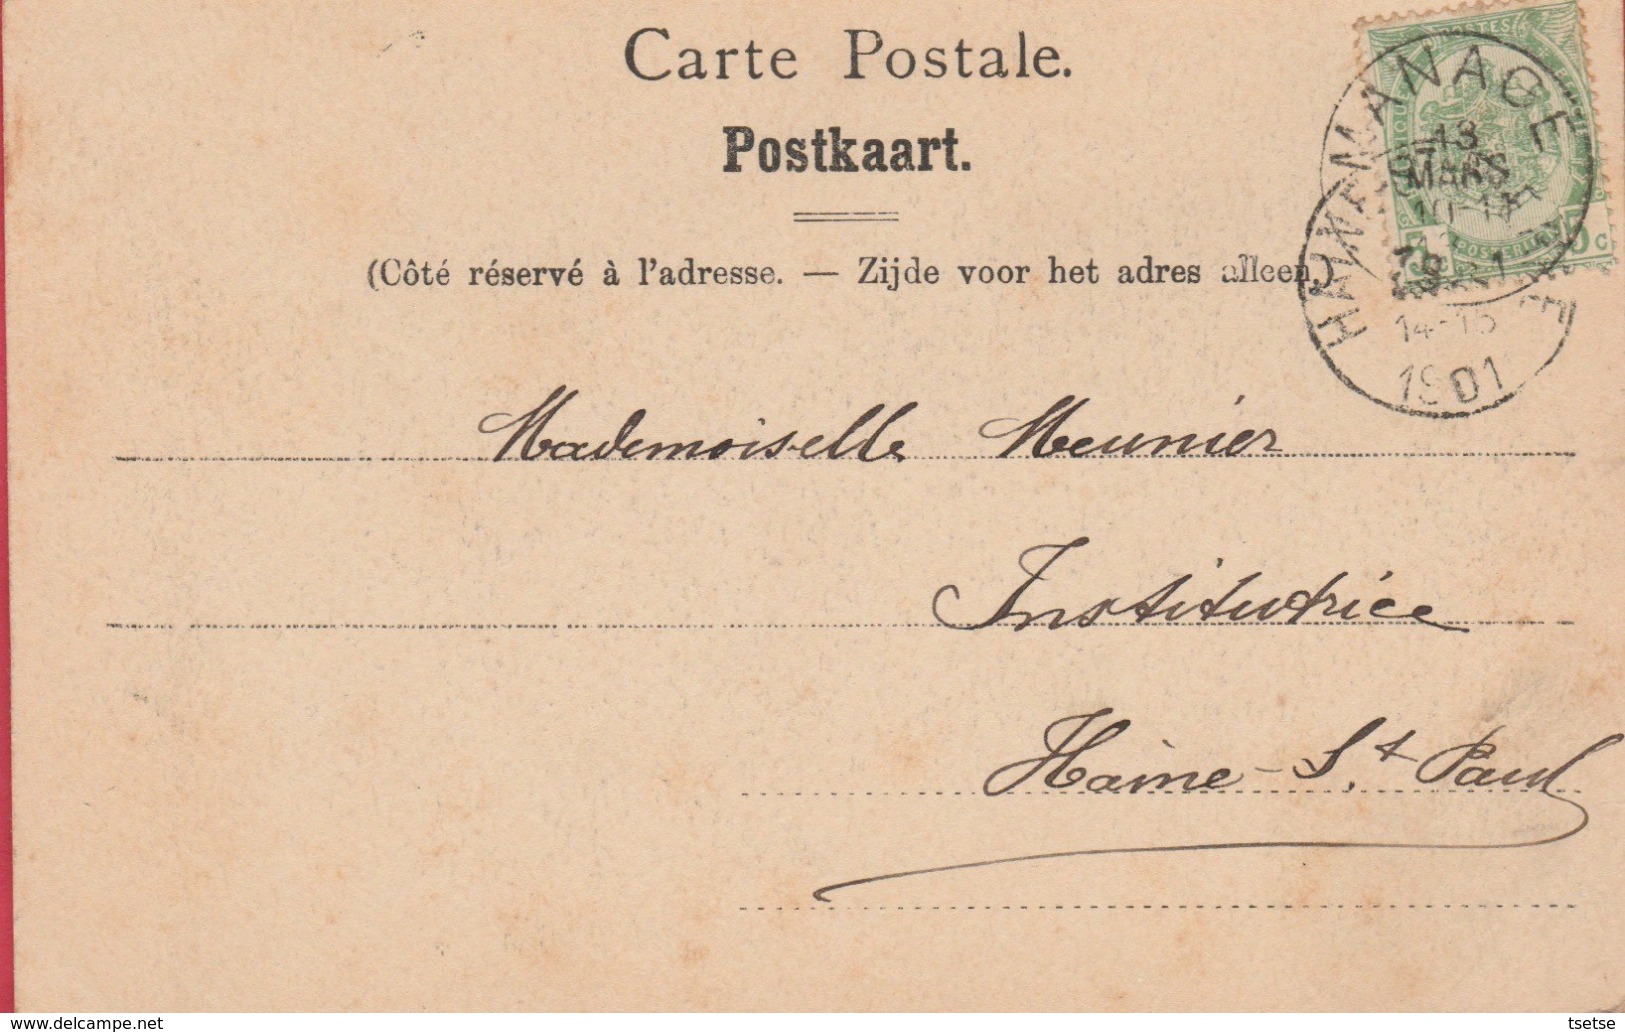 Carte Postale.
Postkaart.
(Côté réservé à l'adresse. — Zijde voor het adres alleen.)
MANAGE
13
MARS
14-15
1901
Mademoiselle Meunier
Institutrice
Haine-St Paul
tsetse